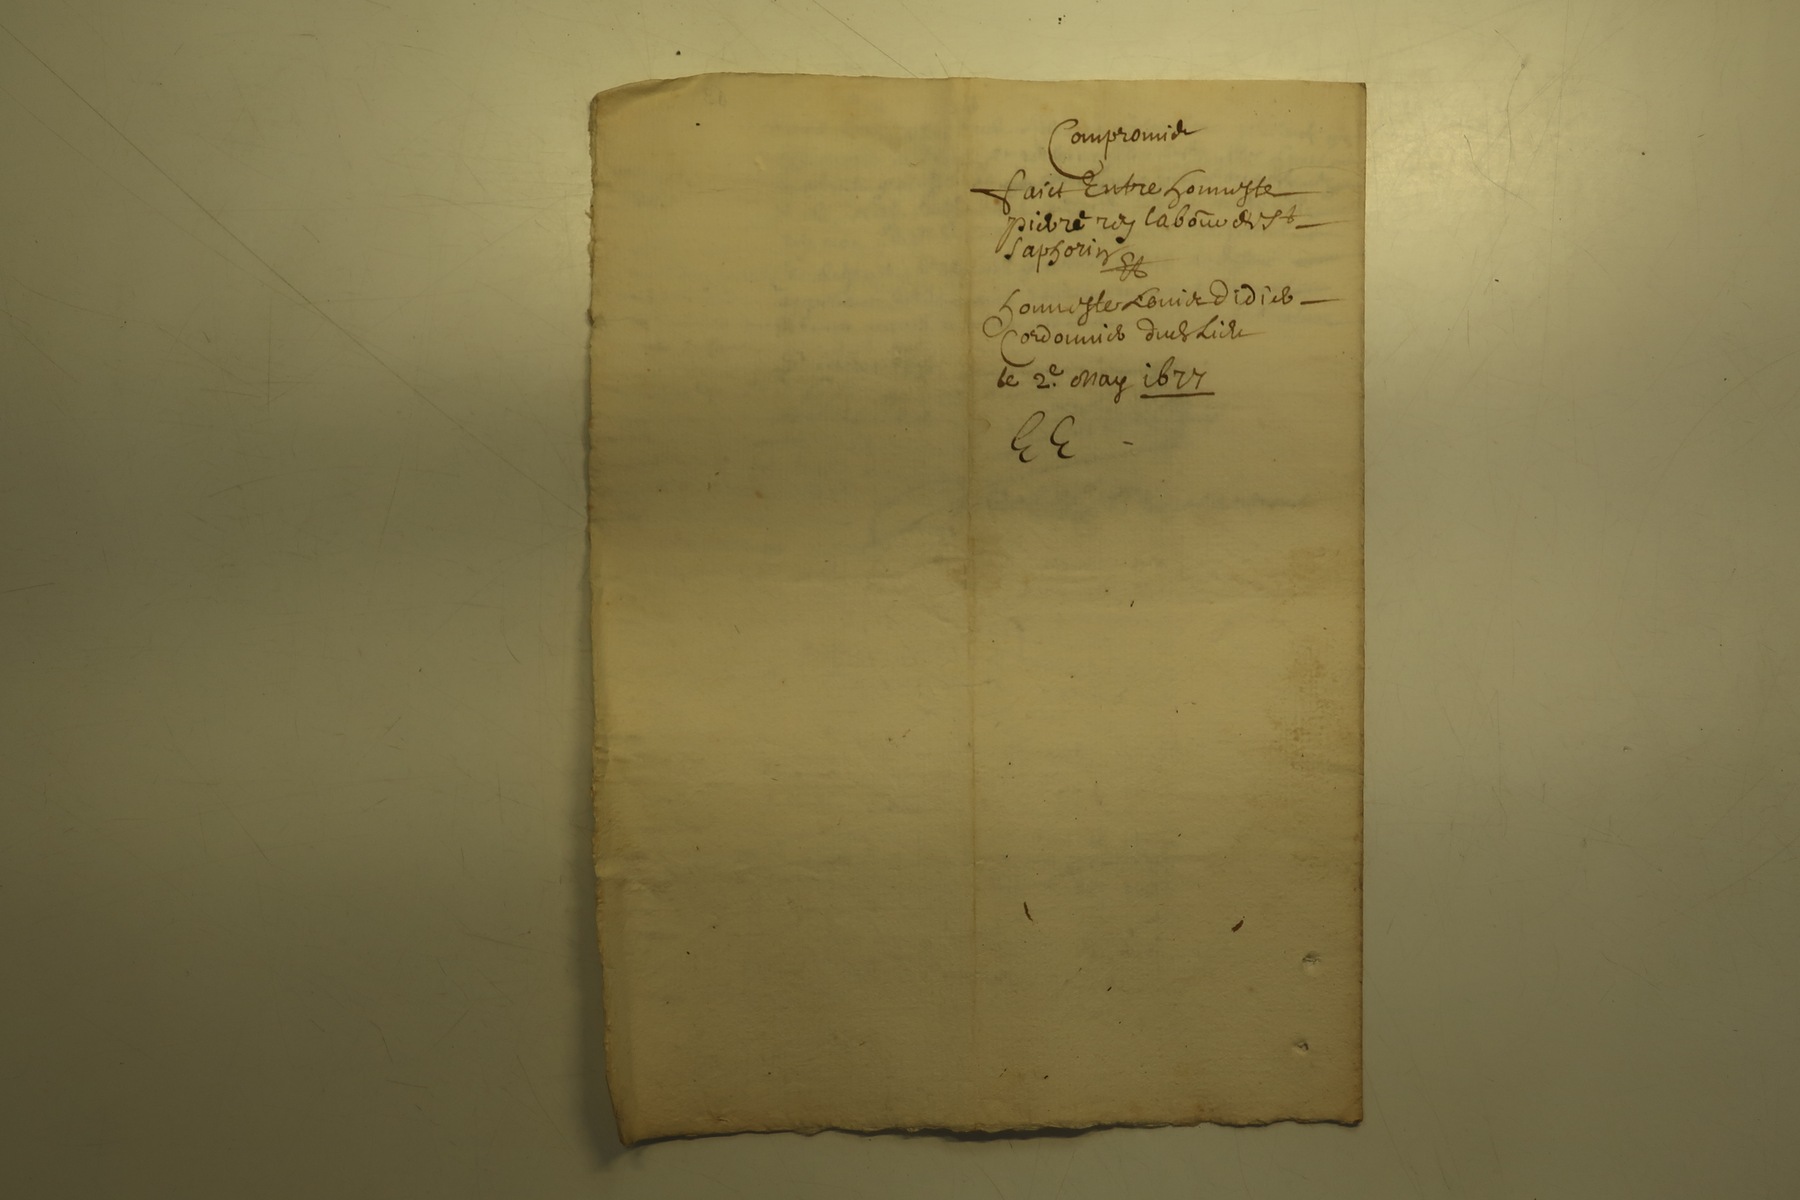 Compromis
faict Entre honneste
pierre rey laboure de St
Saphorin Et
honneste Louis Didier
Cordonnier dud Lieu
le 2e. May 1677